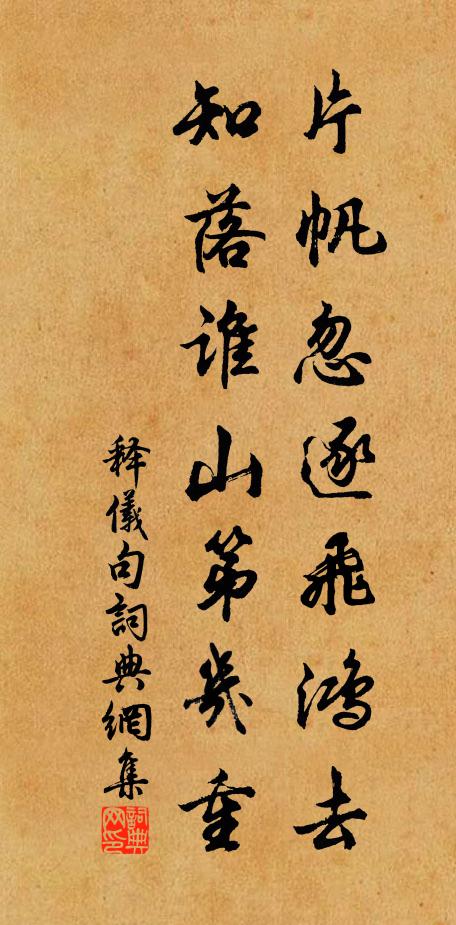 片帆忽逐飛鴻去
知落誰山第幾重
释儀句詞典網集
詞典網印